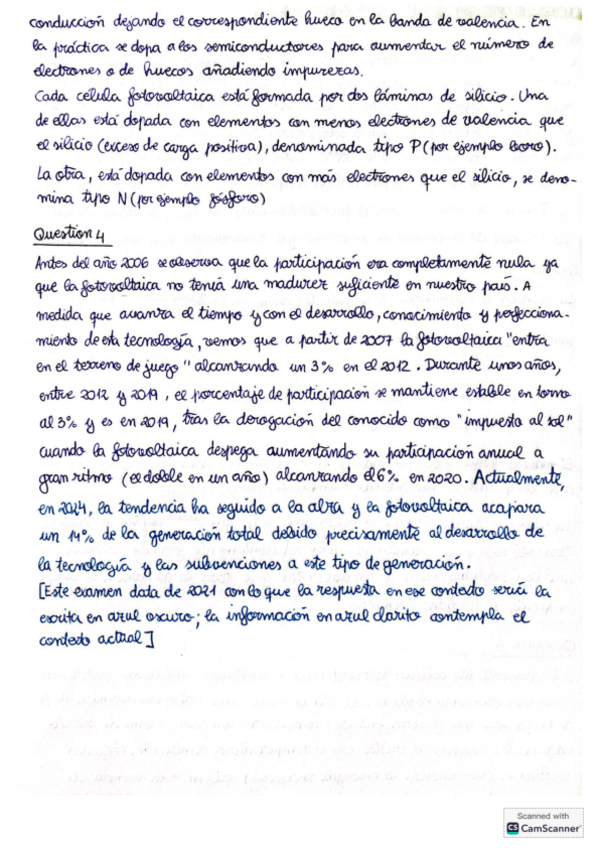 conducción dejando el correspondiente hueco en la banda de valencia. En
la práctica se dopa a los semiconductores para aumentar el número de
electrones o de huecos añadiendo impurezas.
Cada celula fotovoltaica está formada por dos láminas de silicio. Una
de ellas está dopada con elementos con menos electrones de valencia que
el silicio (exceso de carga positiva), denominada tipo P (por ejemplo boro).
La otra, está dopada con elementos con más electrones que el silicio, se deno-
mina tipo N (por ejemplo fósforo)
Question 4
Antes del año 2006 se observa que la participación era completamente nula ya
que la fotovoltaica no tenía una madurez suficiente en nuestro país. A
medida que avanza el tiempo y con el desarrollo, conocimiento y perfecciona-
miento de esta tecnología, vemos que a partir de 2007 la fotovoltaica "entra
en el terreno de juego" alcanzando un 3% en el 2012. Durante unos años,
entre 2012 y 2019, el porcentaje de participación se mantiene estable en torno
al 3% y es en 2019, tras la derogación del conocido como "impuesto al sol"
cuando la fotovoltaica despega aumentando su participación anual a
gran ritmo (el doble en un año) alcanzando el 6% en 2020. Actualmente,
en 2024, la tendencia ha seguido a la alza y la fotovoltaica acapara
un 14% de la generación total debido precisamente al desarrollo de
la tecnología y las subvenciones a este tipo de generación.
[Este examen data de 2021 con lo que la respuesta en ese contexto sería la
escrita en azul oscuro; la información en azul clarito contempla el
contexto actual]
Scanned with
CS CamScanner